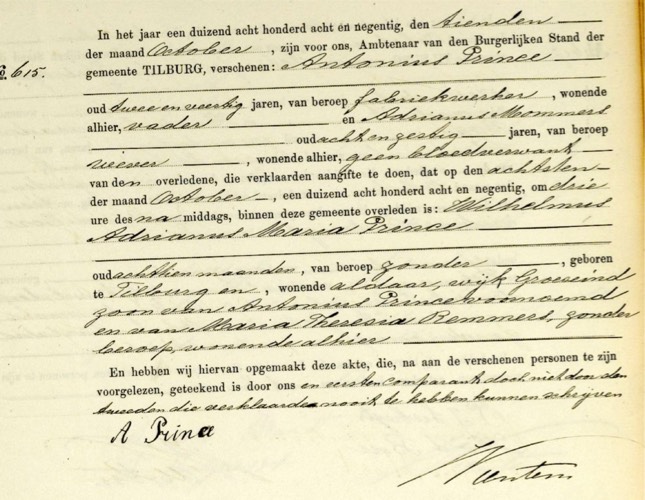 In het jaar een duizend acht honderd acht en negentig, den tienden
der maand October, zijn voor ons, Ambtenaar van den Burgerlijken Stand der
gemeente TILBURG, verschenen: Antonius Prince
No. 615.
oud twee en veertig jaren, van beroep fabriekwerker, wonende
alhier, vader en Adrianus Mommers
oud acht en zestig jaren, van beroep
wever, wonende alhier, geen bloedverwant
van den overledene, die verklaarden aangifte te doen, dat op den achtsten
der maand October, een duizend acht honderd acht en negentig, om drie
ure des na middags, binnen deze gemeente overleden is: Wilhelmus
Adrianus Maria Prince
oud achttien maanden, van beroep zonder, geboren
te Tilburg en, wonende aldaar, wijk Groeseind
zoon van Antonius Prince voornoemd
en van Maria Theresia Remmers, zonder
beroep, wonende alhier
En hebben wij hiervan opgemaakt deze akte, die, na aan de verschenen personen te zijn
voorgelezen, geteekend is door ons en eersten comparant, doch niet door den
tweeden die verklaarde nooit te hebben kunnen schrijven
A Prince